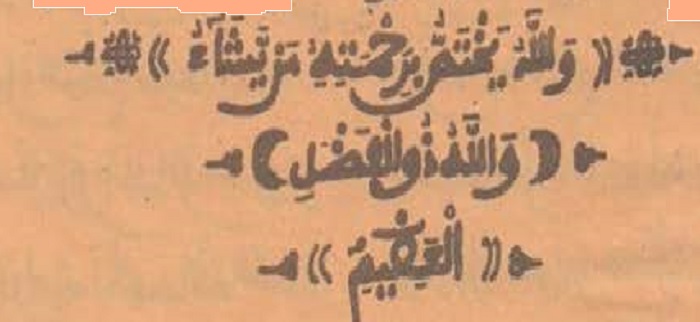 « وَاللَّهُ يَخْتَصُّ بِرَحْمَتِهِ مَنْ يَشَاءُ »
( وَاللَّهُ ذُو الْفَضْلِ )
« الْعَظِيمِ »